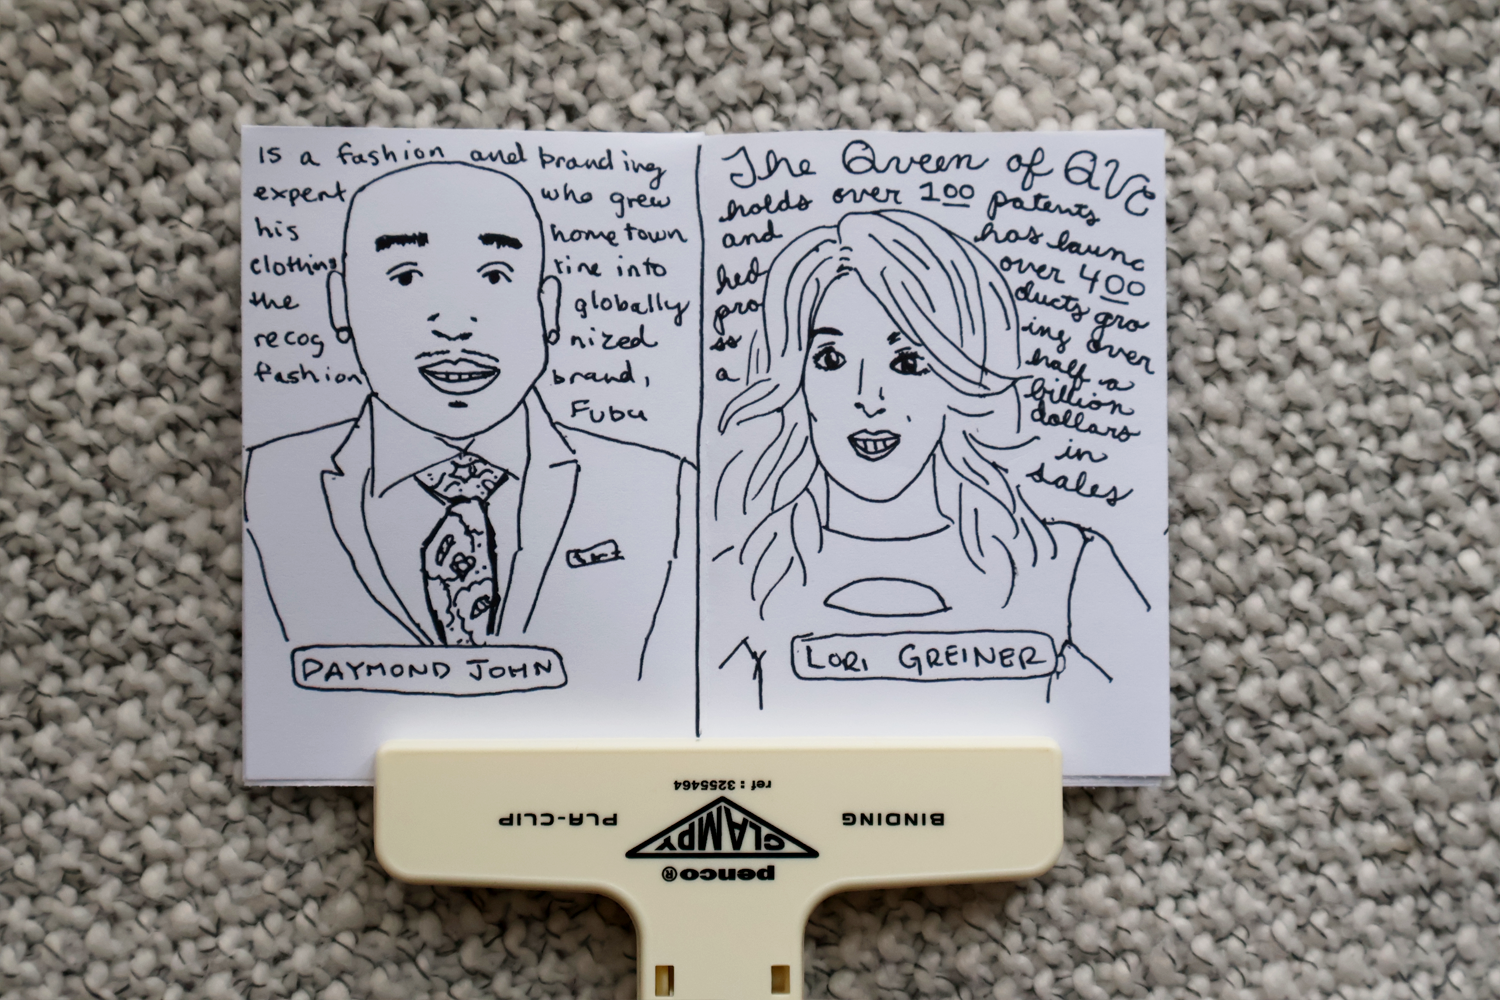 is a fashion and branding
expert who grew
his hometown
clothing line into
the globally
recog nized
fashion brand,
Fubu
DAYMOND JOHN
The Queen of QVC
holds over 100 patents
and has launc
hed over 400
pro ducts gro
ss ing over
a half a
billion
dollars
in
sales
LORI GREINER
ref : 3255464
BINDING CLAMPY PLA-CLIP
penco®